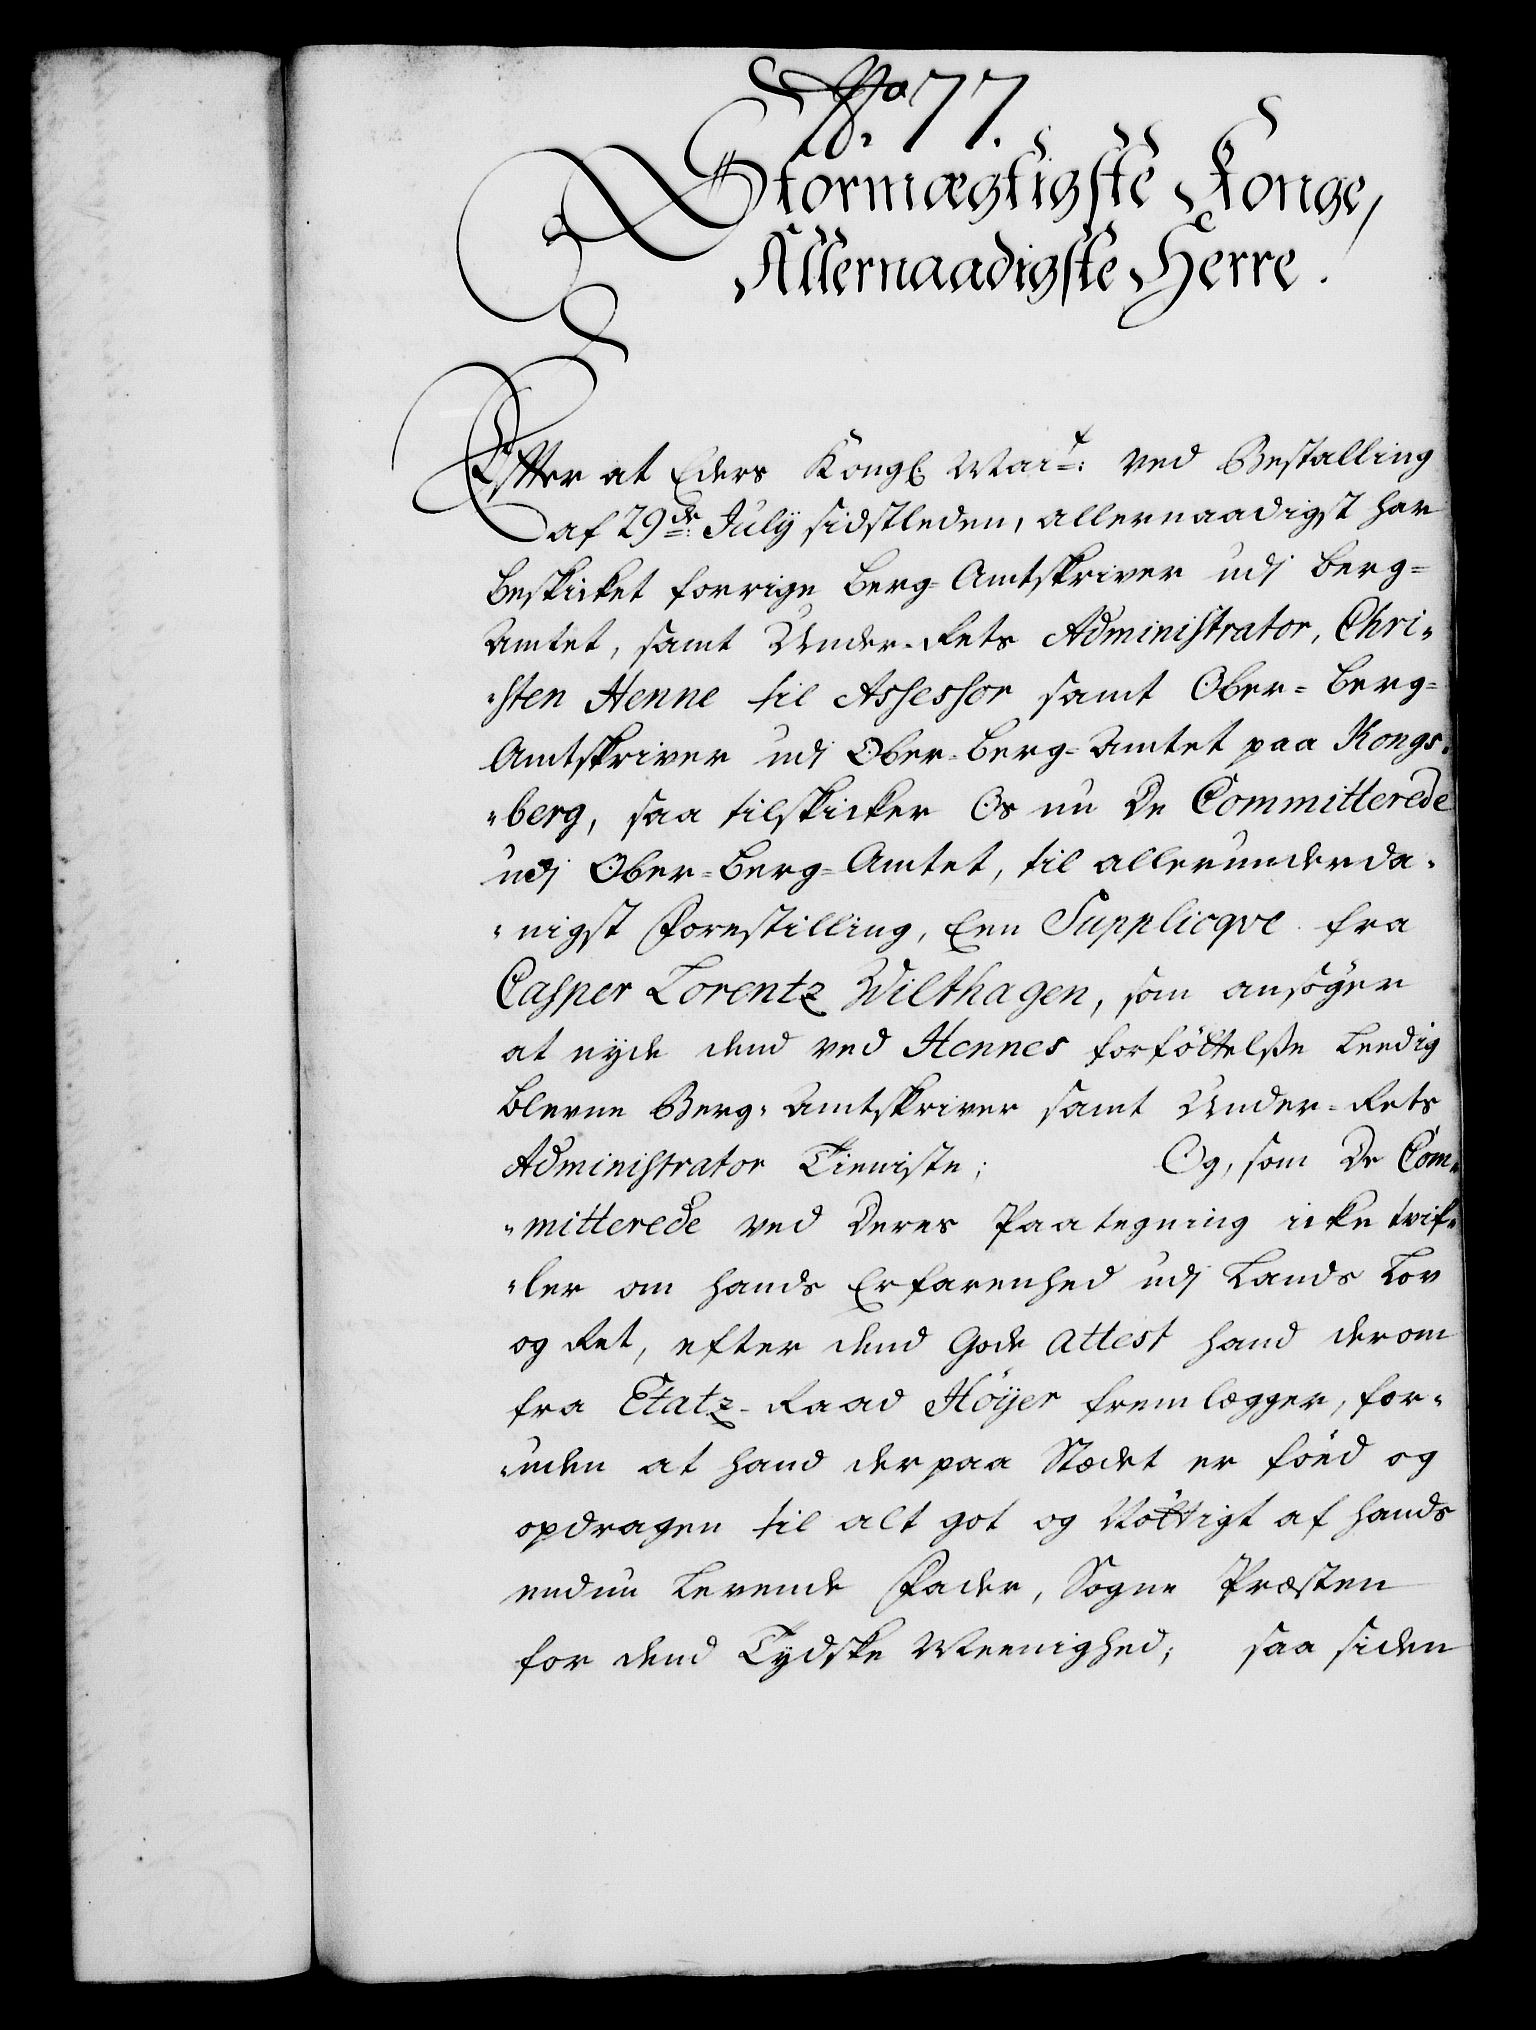 No. 77.
Stormægtigste Konge,
Allernaadigste Herre.
Efter at Eders Kongl. Mait: ved Bestalling
af 29de: July sidstleden, allernaadigst har
beskicket forrige Berg-Amtskriver udj Berg-
Amtet, samt Under-Rets Administrator, Chri-
-sten Henne til Assessor samt Ober-Berg-
Amtskriver udj Ober-Berg-Amtet paa Kongs-
-berg, saa tilskicker Os nu De Committerede
udj Ober-Berg-Amtet, til allerunderda-
-nigst Forestilling, Een Supplicqve fra
Casper Lorentz Wilthagen, som ansøger
at nyde dend ved Hennes forföttelße Leedig
blevne Berg-Amtskriver samt Under-Rets
Administrator Tieniste; Og, som De Com-
-mitterede ved Deres Paategning icke tvif-
-ler om hands Erfarenhed udj Lands Lov
og Ret, efter dend Gode Attest hand derom
fra Etatz-Raad Höyer fremlægger, for-
-uden at hand der paa Stædet er föed og
opdragen til alt got og Nöttigt af hands
endnu Levende Fader, Sogne Præsten
for dend Tydske Meenighed; saa siden